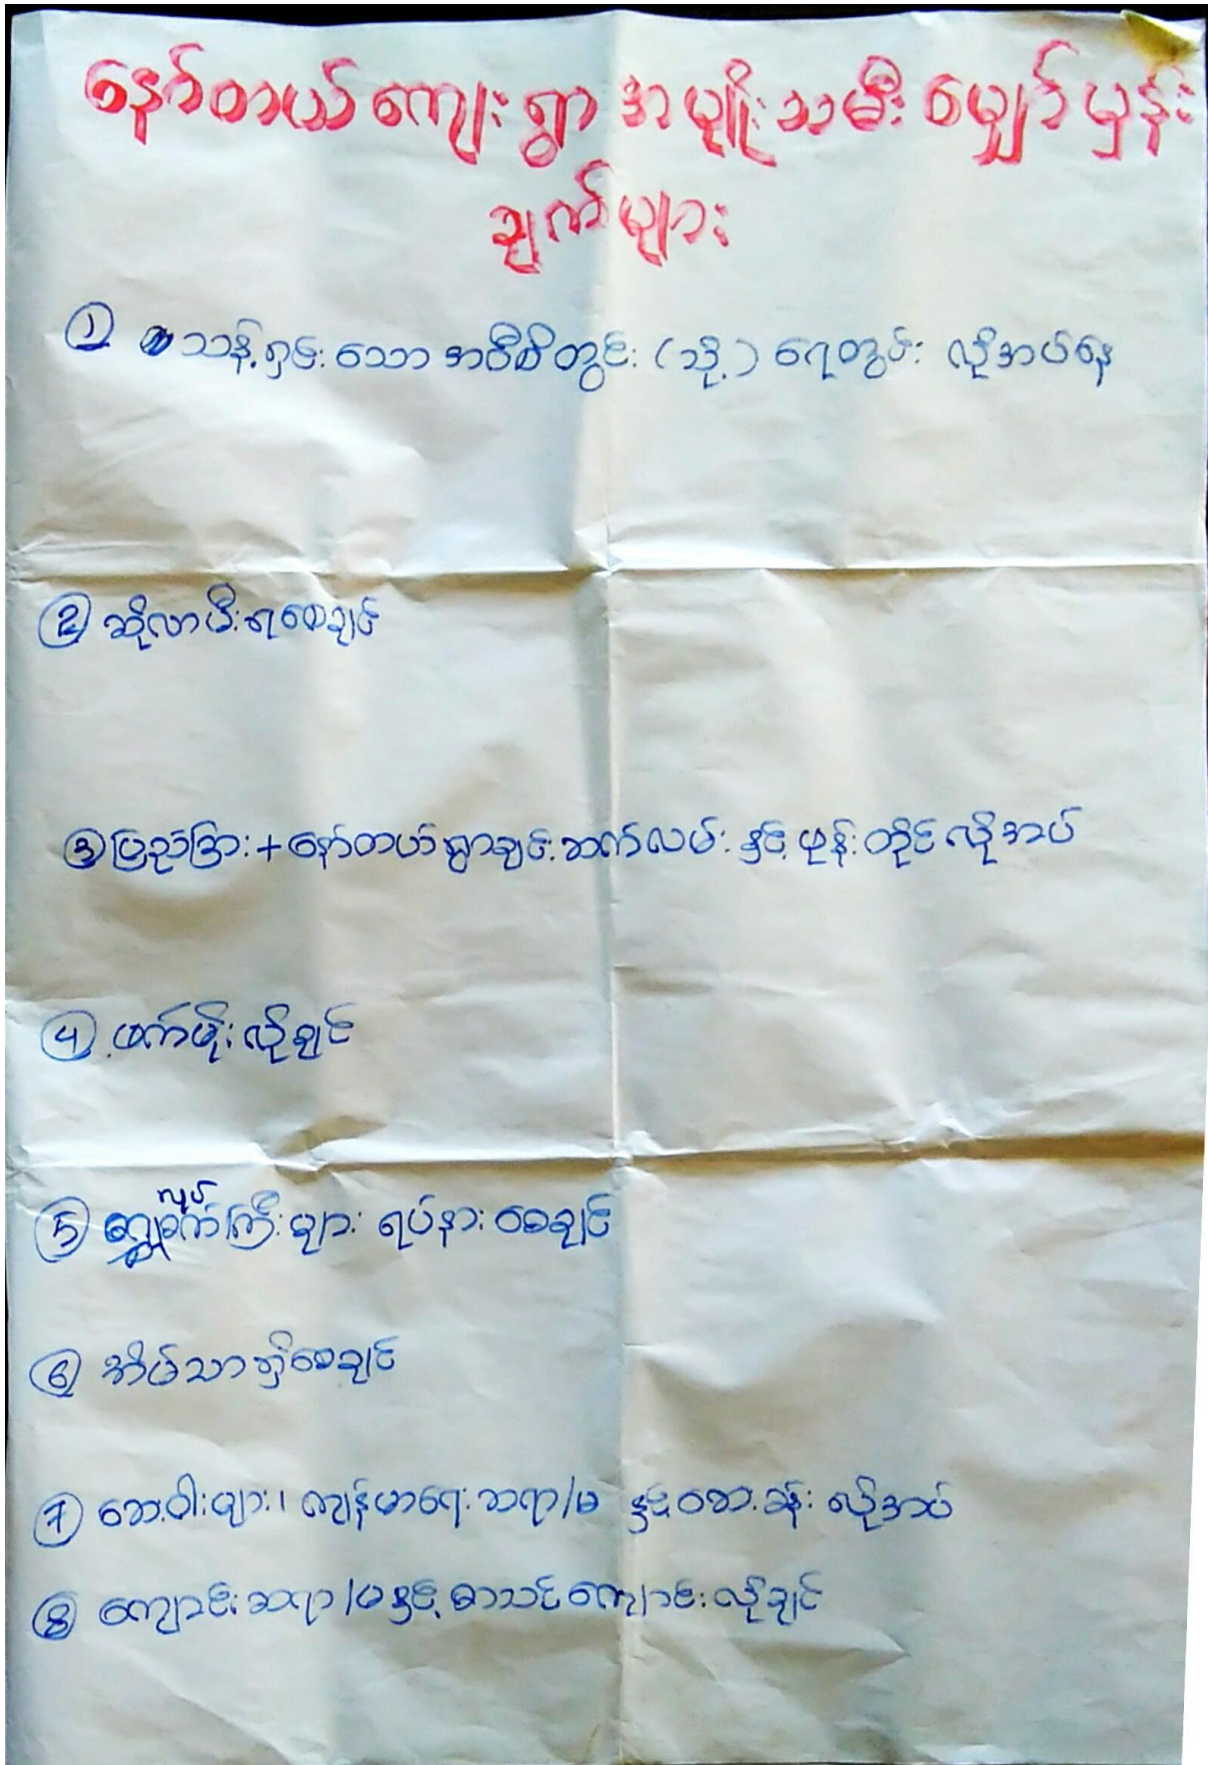 နော်တယ်ကျေးရွာ အမျိုးသမီး မျှော်မှန်း
ချက်များ
① သန့်ရှင်းသော အဝီစိတွင်း (သို့) ရေတွင်း လိုအပ်နေ
② ဆိုလာမီးရစေချင်
③ ပြည်ကြား + နော်တယ် ရွာချင်းဆက်လမ်း နှင့် ဖုန်းတိုင် လိုအပ်
④ ဖက်မိုး လိုချင်
⑤ လှုပ်စက်ကြီးများ ရပ်နားစေချင်
⑥ အိမ်သာရှိစေချင်
⑦ ဆေးဝါးများ၊ ကျန်မာရေးဆရာ/မ နှင့် ဆေးခန်း လိုအပ်
⑧ ကျောင်းဆရာ/မနှင့် စာသင်ကျောင်းလိုချင်